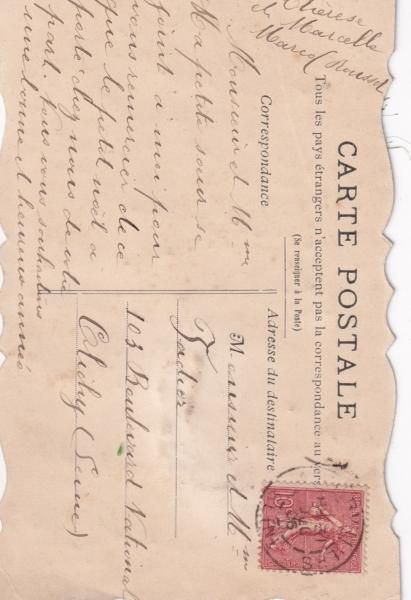 CARTE POSTALE
Tous les pays étrangers n'acceptent pas la correspondance au vers
(Se renseigner à la Poste)
Correspondance
Monsieur et Mme
Ma petite sœur se
joint à moi pour
vous remercier de ce
que le petit noël a
porté chez nous de votre
part. Nous vous souhaitons
une bonne et heureuse année
Thérèse
et Marcelle
Adresse du destinataire
Monsieur et Mme
103 Boulevard National
Clichy (Seine)
10